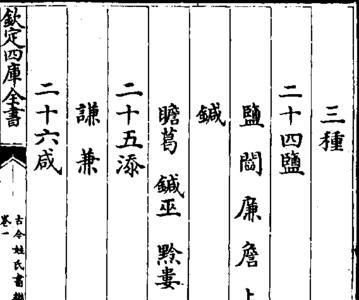 三種
二十四鹽
鹽 閻 廉 詹 上
鍼
瞻葛 鍼巫 黔婁
二十五添
謙 兼
二十六咸
欽定四庫全書
古今姓氏書辯
卷一